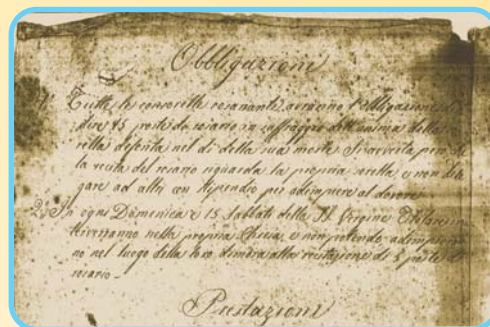 Obbligazioni
1° Tutte le consorelle rosananti avranno l'obbligazione di
dire 15 poste di rosario in suffraggio dell'anima della
rella defonta nel dì della sua morte. Si avverta però che
la recita del rosario riguarda la propria sorella e non dele
gare ad altri con stipendio per adempiere al dovere
2° In ogni Domenica e 15 Sabbati della SS. Vergine
nella propria Chiesa, e non potendo
no nel luogo della loro dimora alla recitazione di 5 poste di
rosario.
Prestazioni